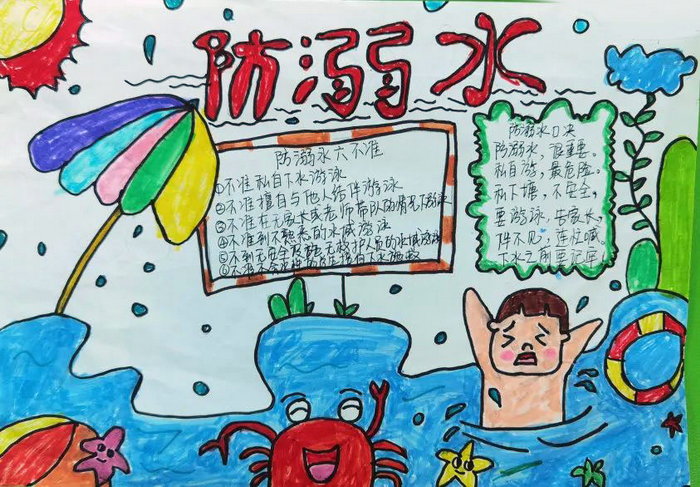 防溺水
防溺水六不准
①不准私自下水游泳
②不准擅自与他人结伴游泳
③不准在无家长或老师带队的情况下游泳
④不准到不熟悉的水域游泳
⑤不到无安全设施无救护人员的水域游泳
⑥不
防溺水口决
防溺水，很重要。
私自游，最危险。
私下塘，不安全，
要游泳，告家长，
伴不见，连忙喊。
下水之前要记牢